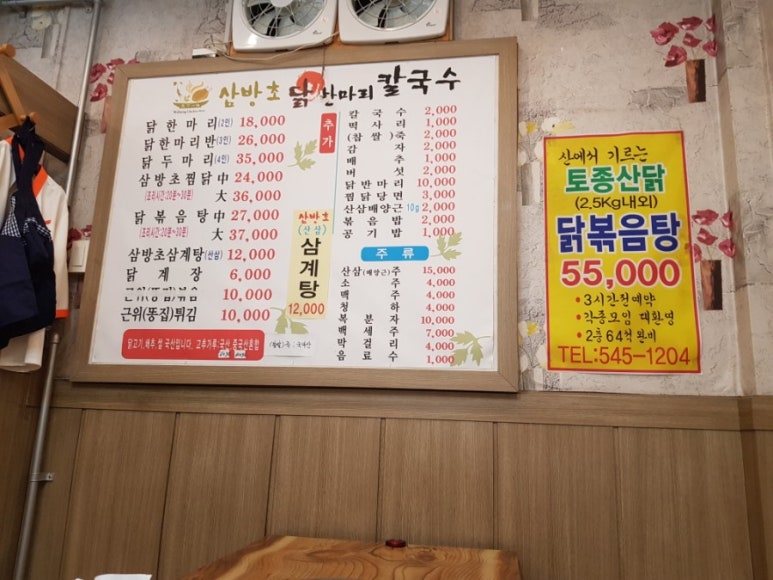 삼방초 닭 한마리 칼국수
닭 한 마 리 (2인) 18,000
닭 한 마 리 반 (3인) 26,000
닭 두 마 리 (4인) 35,000
삼방초찜닭 中 24,000
(조리시간:20분~30분) 大 36,000
닭 볶 음 탕 中 27,000
(조리시간:20분~30분) 大 37,000
삼방초삼계탕 (산삼) 12,000
닭 계 장 6,000
근위(똥집)볶음 10,000
근위(똥집)튀김 10,000
닭고기, 배추, 쌀 국산입니다. 고추가루:국산 중국산혼합
삼방초
(산삼)
삼계탕
12,000
추가
칼 국 수 2,000
떡 사 리 1,000
(찹 쌀) 죽 2,000
감 자 2,000
배 추 2,000
버 섯 2,000
닭 반 마 리 10,000
찜 닭 당 면 3,000
산삼배양근 10g 2,000
볶 음 밥 2,000
공 기 밥 1,000
주 류
산삼(배양근)주 15,000
소 주 4,000
맥 주 4,000
청 하 4,000
복 분 자 10,000
백 세 주 7,000
막 걸 리 4,000
음 료 수
산에서 기르는
토종산닭
(2.5Kg내외)
닭볶음탕
55,000
• 3시간전예약
• 각종모임 대환영
• 2층 64석 완비
TEL:545-1204